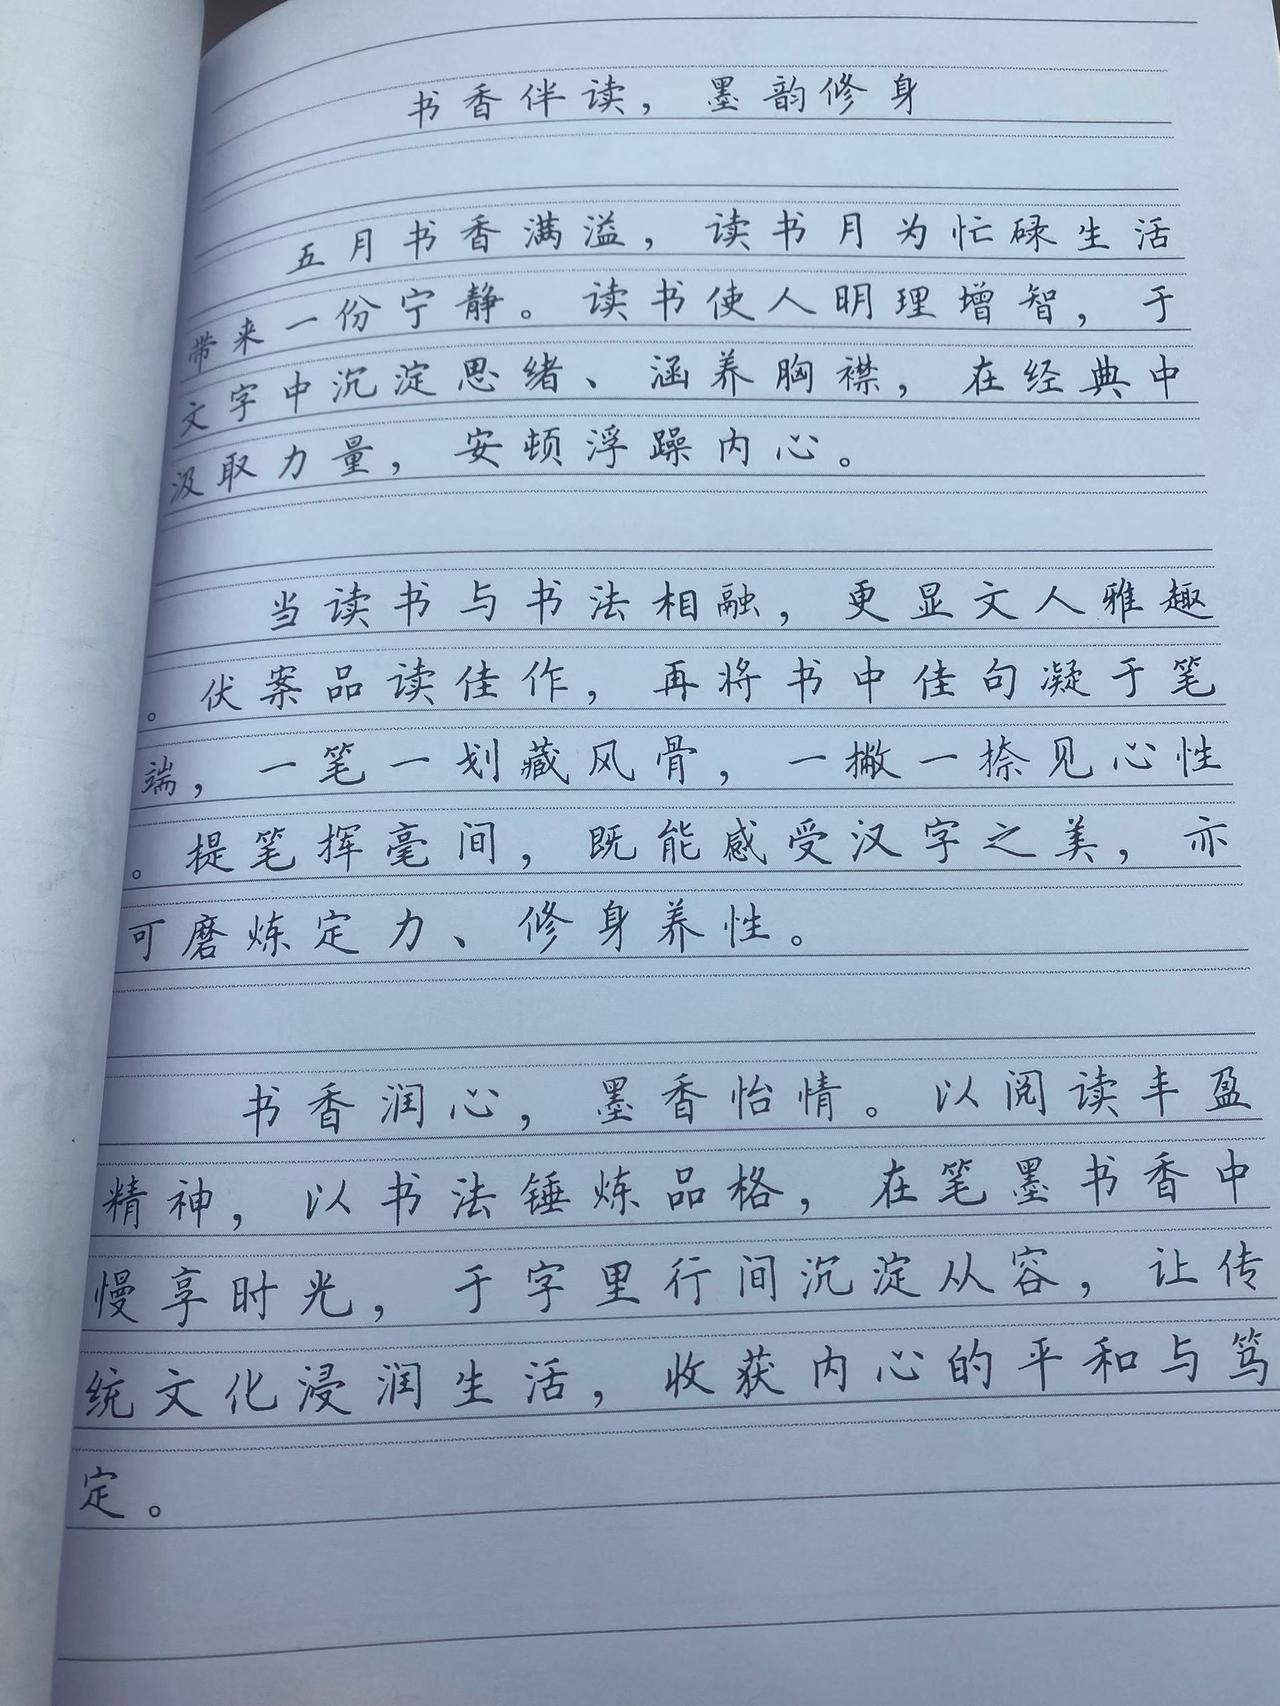 书香伴读，墨韵修身
五月书香满溢，读书月为忙碌生活
带来一份宁静。读书使人明理增智，于
文字中沉淀思绪、涵养胸襟，在经典中
汲取力量，安顿浮躁内心。
当读书与书法相融，更显文人雅趣
。伏案品读佳作，再将书中佳句凝于笔
端，一笔一划藏风骨，一撇一捺见心性
。提笔挥毫间，既能感受汉字之美，亦
可磨炼定力、修身养性。
书香润心，墨香怡情。以阅读丰盈
精神，以书法锤炼品格，在笔墨书香中
慢享时光，于字里行间沉淀从容，让传
统文化浸润生活，收获内心的平和与笃
定。